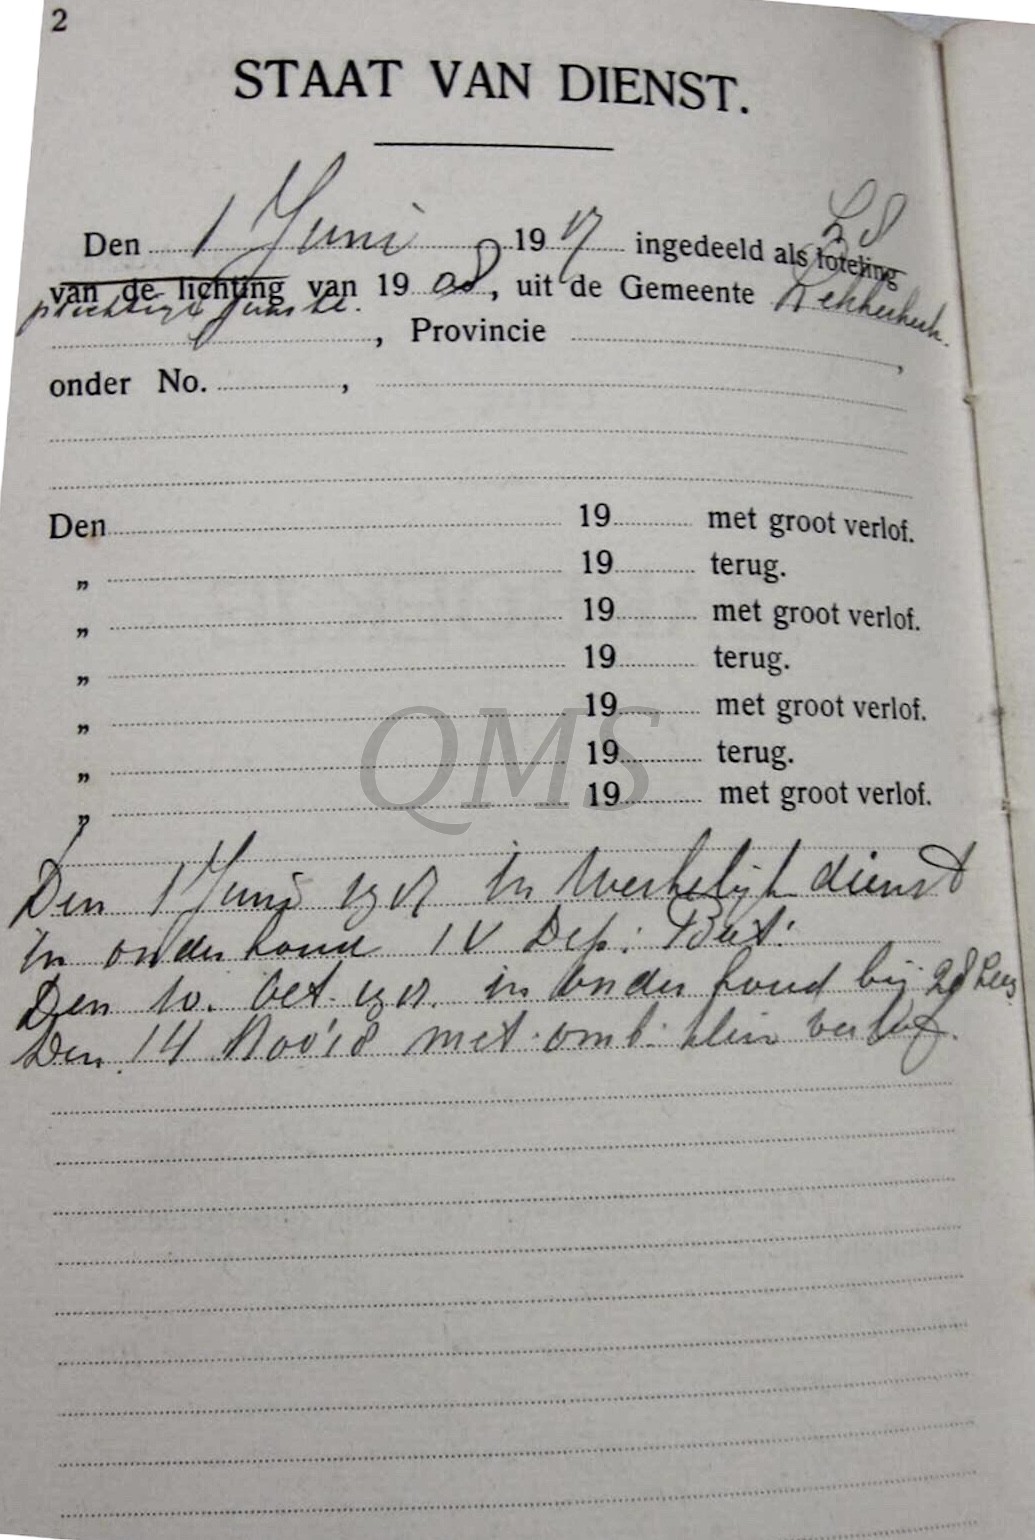 2
STAAT VAN DIENST.
Den 1 Juni 1917 ingedeeld als loteling
van de lichting van 1908, uit de Gemeente Lekkerkerk.
plichtige
, Provincie ,
onder No. ,
Den 19 met groot verlof.
„ 19 terug.
„ 19 met groot verlof.
„ 19 terug.
„ 19 met groot verlof.
„ 19 terug.
„ 19 met groot verlof.
QMS
Den 1 Juni 1917 in werkelijk dienst
in onderhoud IV Dep: Bat:
Den 10. Oct. 1917. in onderhoud bij
Den 14 Nov '18 met onb. klein verlof.